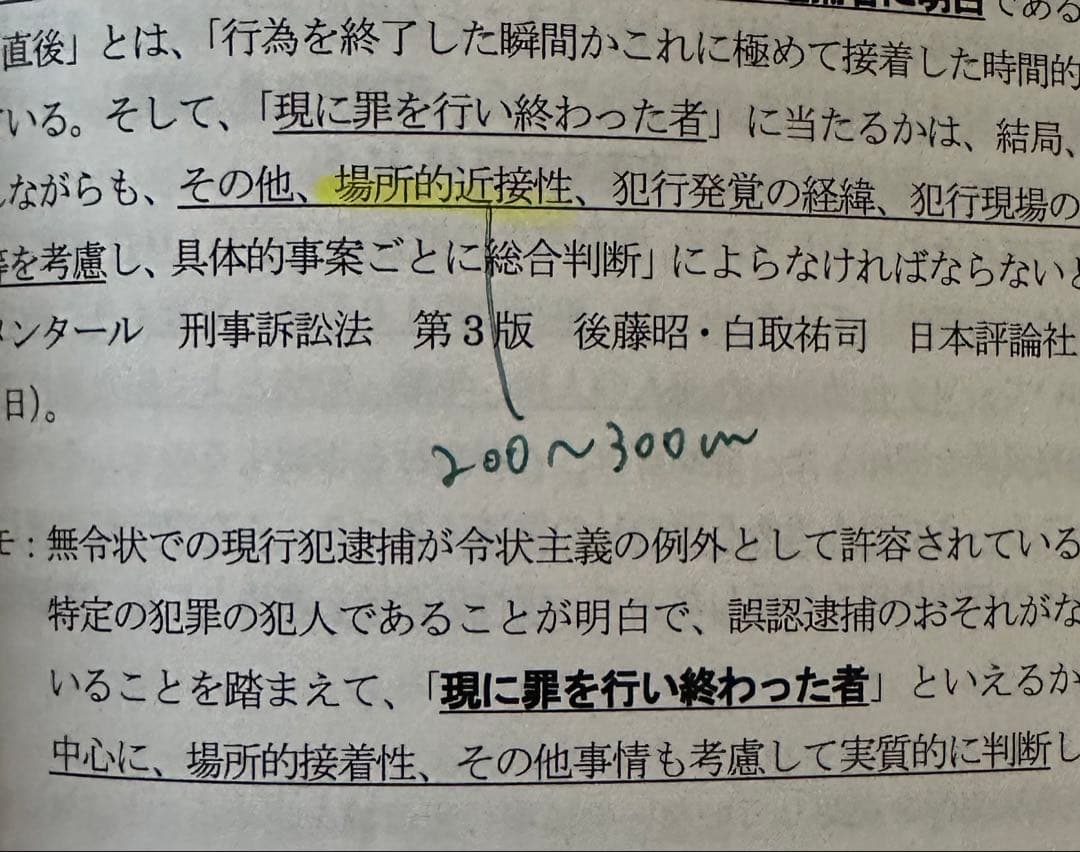 に明白である
直後」とは、「行為を終了した瞬間かこれに極めて接着した時間的
いる。そして、「現に罪を行い終わった者」に当たるかは、結局、
ながらも、その他、場所的近接性、犯行発覚の経緯、犯行現場の
等を考慮し、具体的事案ごとに総合判断」によらなければならないと
メンタール 刑事訴訟法 第3版 後藤昭・白取祐司 日本評論社
日)。
200〜300m
モ:無令状での現行犯逮捕が令状主義の例外として許容されている
特定の犯罪の犯人であることが明白で、誤認逮捕のおそれがな
いることを踏まえて、「現に罪を行い終わった者」といえるか
中心に、場所的接着性、その他事情も考慮して実質的に判断し